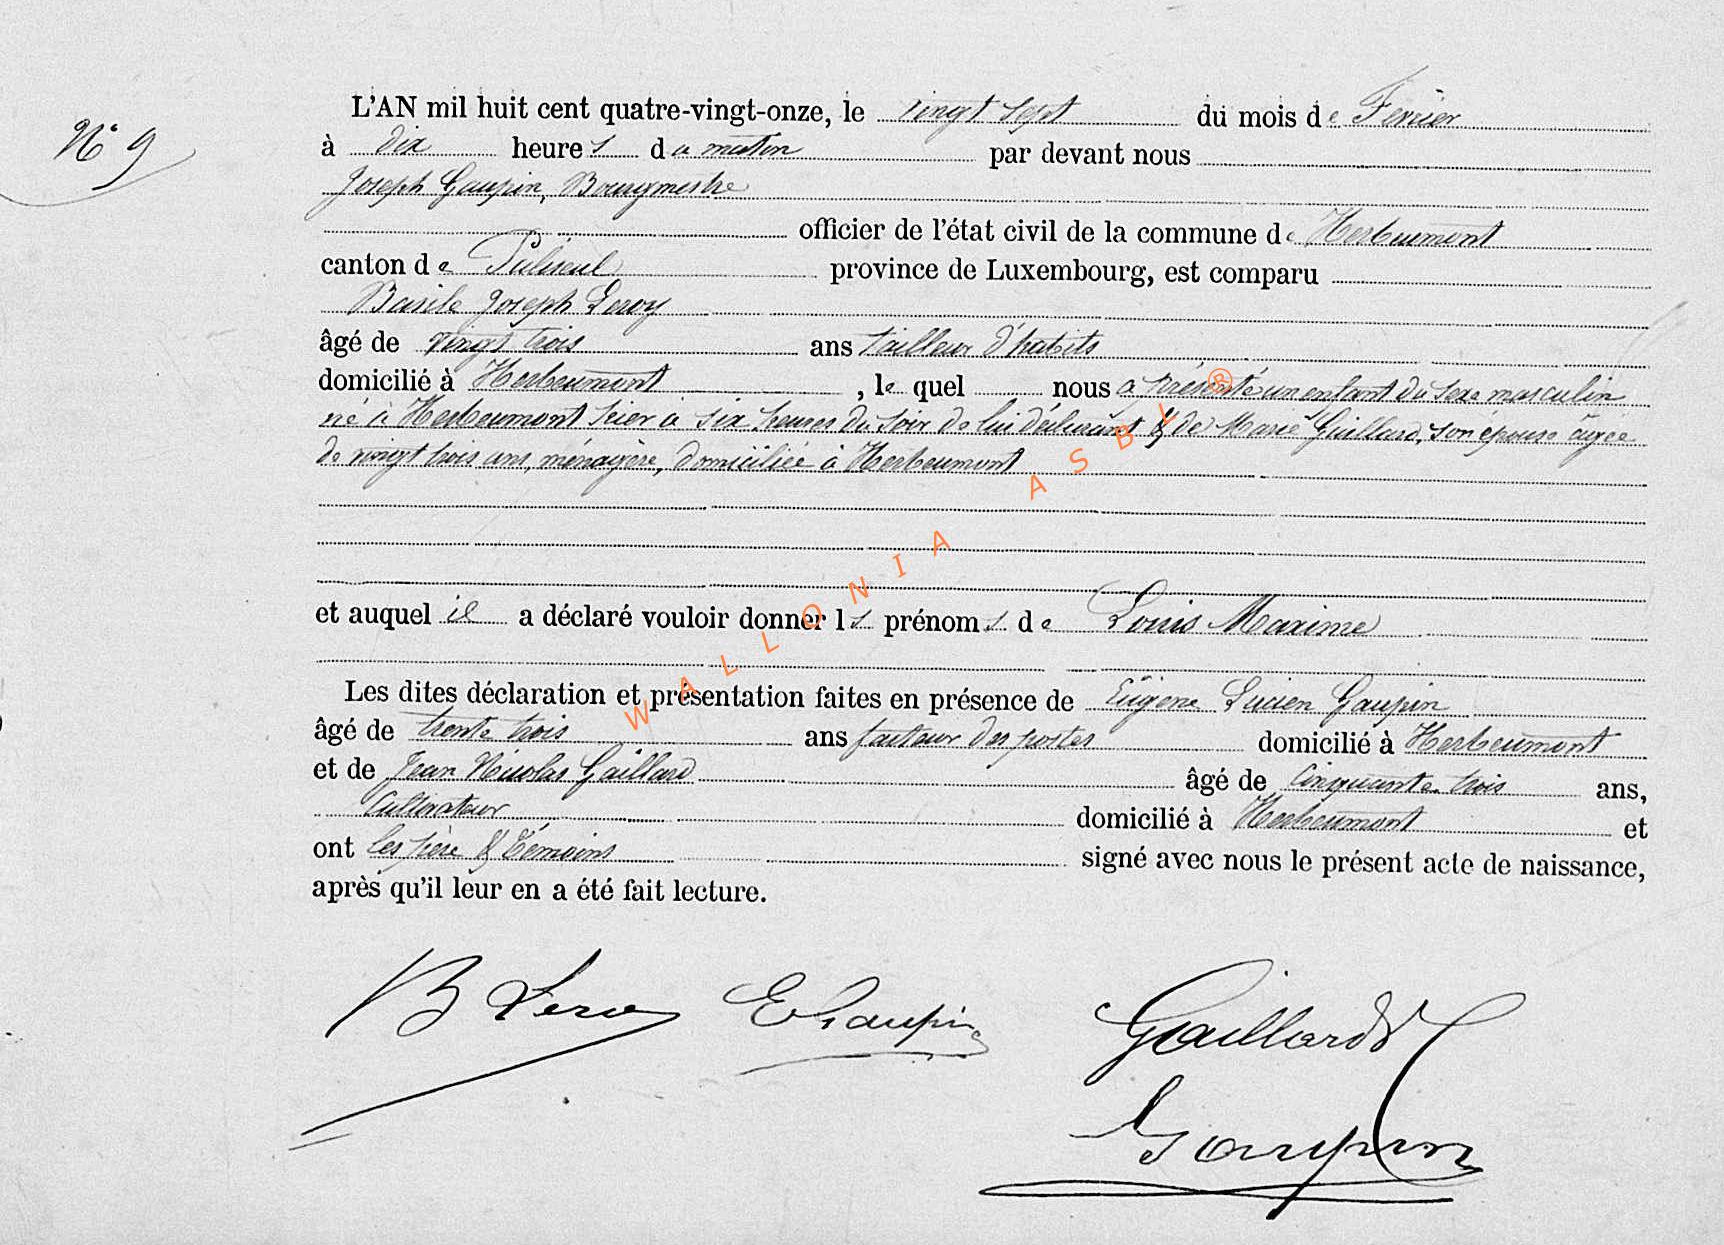 N° 9
L'AN mil huit cent quatre-vingt-onze, le vingt sept du mois de Fevrier
à dix heures du matin par devant nous
Joseph Gaupin, Bourgmestre
officier de l'état civil de la commune de Herbeumont
canton de Paliseul province de Luxembourg, est comparu
Basile Joseph Leroy
âgé de vingt trois ans tailleur d'habits
domicilié à Herbeumont, le quel nous a présenté un enfant du sexe masculin
né à Herbeumont hier à six heures du soir de lui déclarant & de Marie Gaillard, son épouse âgée
de vingt trois ans, ménagère, domiciliée à Herbeumont
et auquel il a déclaré vouloir donner ls prénoms de Louis Maxime
Les dites déclaration et présentation faites en présence de Eugène Lucien Gaupin
âgé de trente trois ans facteur des postes domicilié à Herbeumont
et de Jean Nicolas Gaillard âgé de cinquante trois ans,
Cultivateur domicilié à Herbeumont et
ont les père & témoins signé avec nous le présent acte de naissance,
après qu'il leur en a été fait lecture.
B Leroy E Gaupin Gaillard
Gaupin
WALLONIA ASBL ®